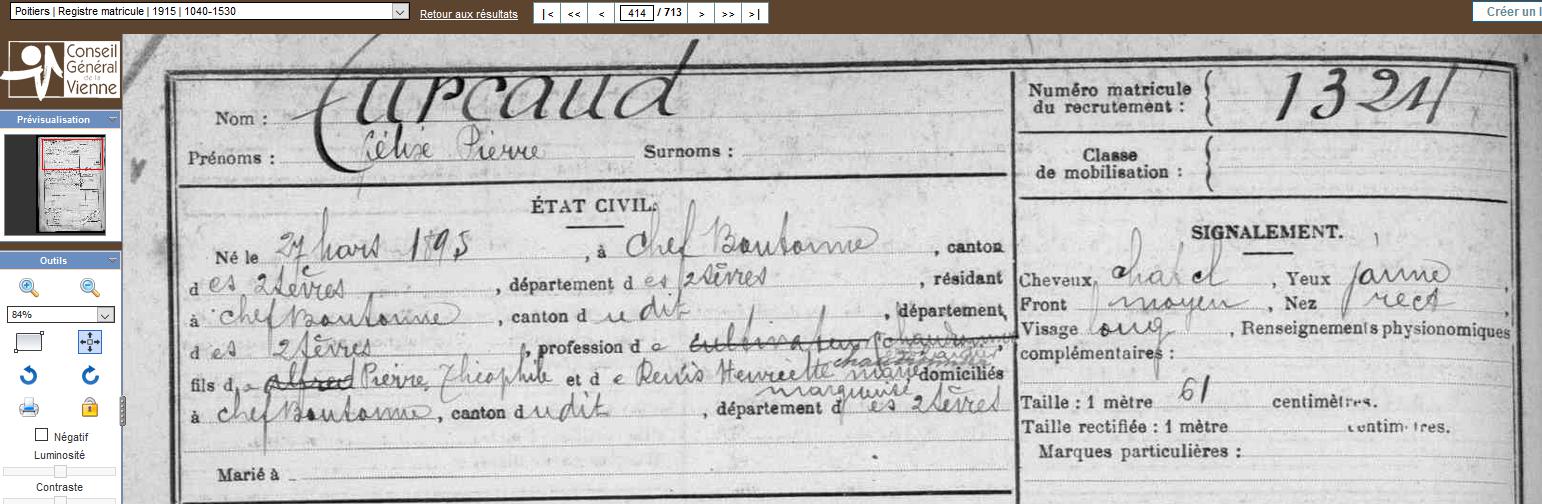 Poitiers | Registre matricule | 1915 | 1040-1530
Retour aux résultats
|< << < 414 / 713 > >> >|
Créer un l
Conseil
Général
de la
Vienne
Prévisualisation
Outils
84%
Négatif
Luminosité
Contraste
Nom :
Prénoms : Célise Pierre Surnoms :
Numéro matricule
du recrutement : 1324
Classe
de mobilisation :
ÉTAT CIVIL.
Né le 27 Mars 1895, à Chef Boutonne, canton
d es 2 Sèvres, département d es 2 Sèvres, résidant
à Chef Boutonne, canton d u dit, département
d es 2 Sèvres, profession d e cultivateur
fils d e Alfred Pierre Théophile et d e Denis Henriette domiciliés
marguerite
à Chef Boutonne, canton d u dit, département d es 2 Sèvres
Marié à
SIGNALEMENT.
Cheveux, Yeux jaune,
Front moyen, Nez rect
Visage long, Renseignements physionomiques
complémentaires :
Taille : 1 mètre 61 centimètres.
Taille rectifiée : 1 mètre centimètres.
Marques particulières :